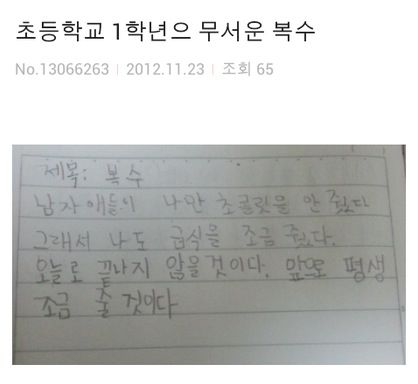 초등학교 1학년으 무서운 복수
No.13066263 | 2012.11.23 | 조회 65
제목: 복수
남자애들이 나만 초콜릿을 안 줬다
그래서 나도 급식을 조금 줬다.
오늘로 끝나지 않을것이다. 앞으로 평생
조금 줄 것이다